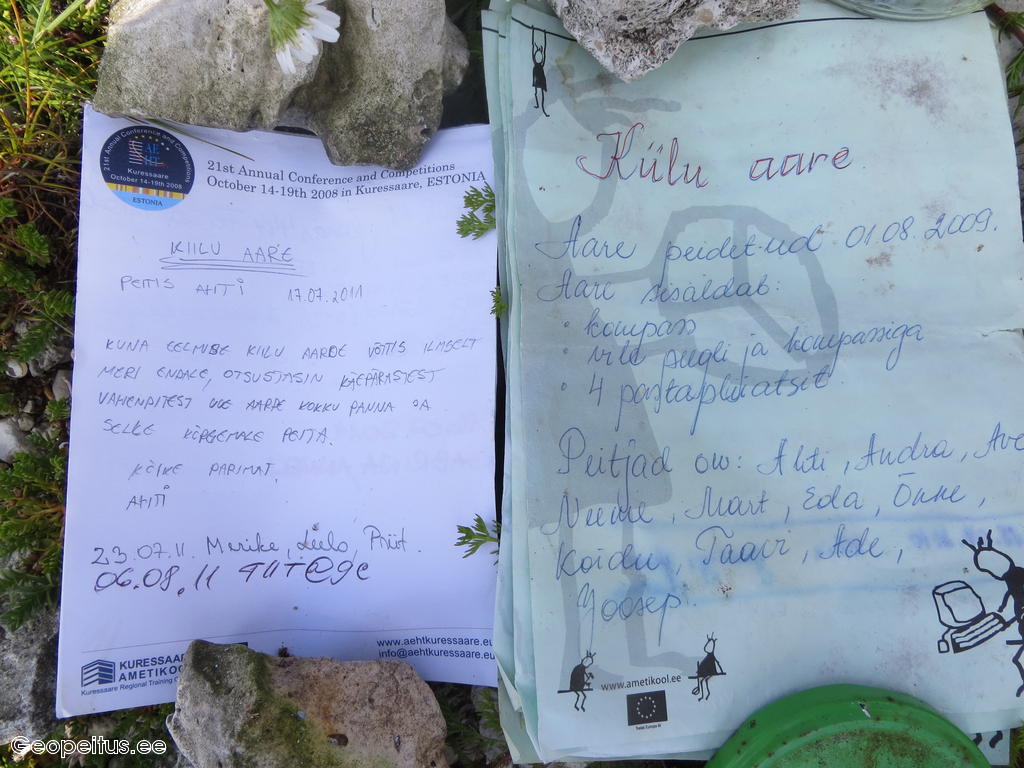 21st Annual Conference and Competitions
Kuressaare
October 14-19th 2008
ESTONIA
21st Annual Conference and Competitions
October 14-19th 2008 in Kuressaare, ESTONIA
KIILU AARE
PEITIS AHTI 17.07.2011
KUNA EELMISE KIILU AARDE VÕTTIS ILMSELT
MERI ENDALE, OTSUSTASIN KÄEPÄRASTEST
VAHENDITEST UUE AARDE KOKKU PANNA JA
SELLE KÕRGEMALE PEITA.
KÕIKE PARIMAT,
AHTI
23.07.11. Merike, Leelo, Priit.
06.08.11
www.aehtkuressaare.eu
info@aehtkuressaare.eu
KURESSAA
AMETIKOOL
Kuressaare Regional Training
Kiilu aare
Aare peidetud 01.08.2009.
Aare sisaldab:
• kompass
• vile peegli ja kompassiga
• 4 pastapliiatsit
Peitjad on: Ahti, Andra, Ave
Neeme, Mart, Eda, Õnne,
Koidu, Taavi, Ade,
Joosep.
www.ametikool.ee
Geopeitus.ee